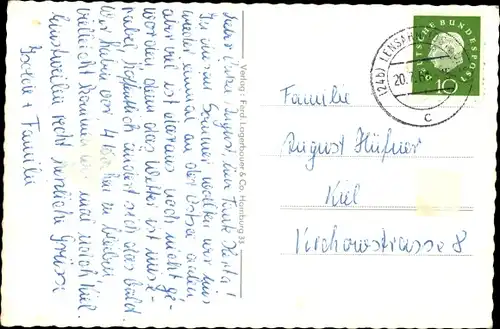 Lieber Onkel August, liebe Tante Herta!
In diesem Sommer wollten wir uns
wieder einmal an der Ostsee aalen
aber viel ist daraus noch nicht ge-
worden, denn das Wetter ist mise-
rabel. Hoffentlich ändert sich das bald.
Wir haben vor 4 Wochen zu bleiben.
Vielleicht kommen wir mal nach Kiel.
Einstweilen recht herzliche Grüsse
+ Familie
Verlag: Ferd. Lagerbauer & Co. Hamburg 33
(24b) LENSAHN
20.7.
c
DEUTSCHE BUNDESPOST
10
Familie
August Hüfner
Kiel
Virchowstrasse 8